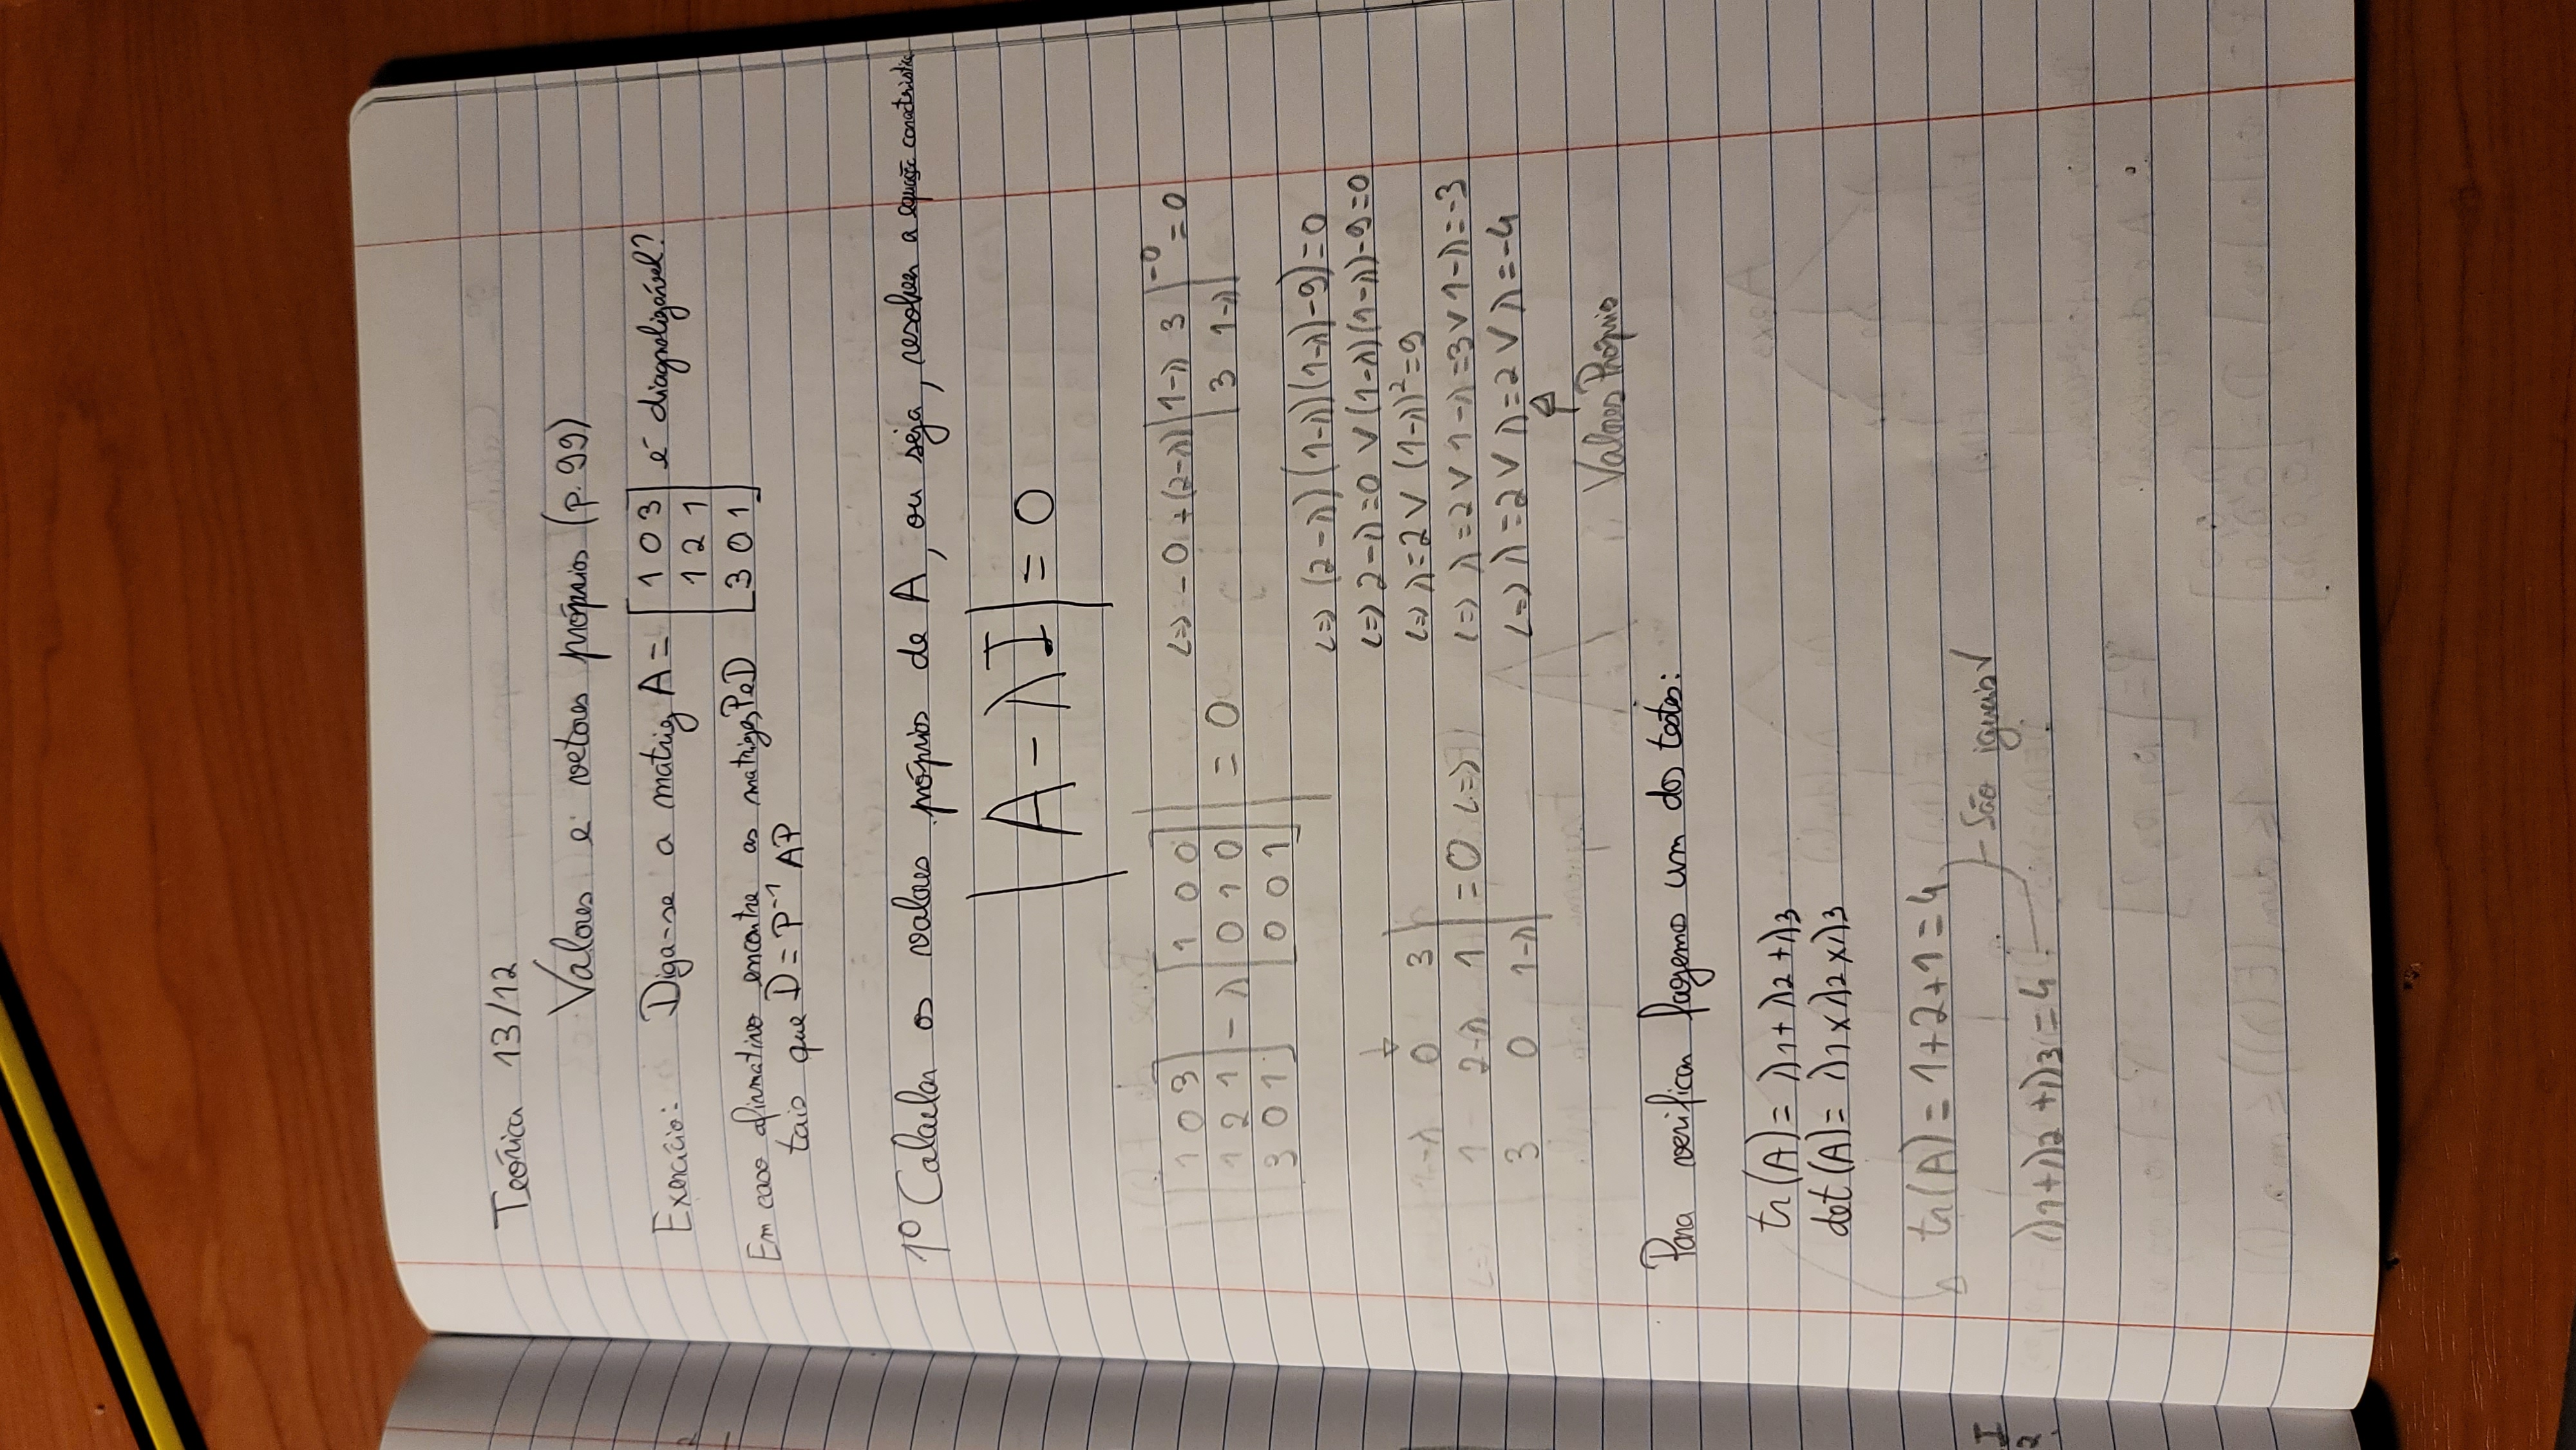 Teórica 13/12
Valores e vetores próprios (p. 99)
Exercício: Diga-se a matriz A = [1 0 3] é diagnolizável?
[1 2 1]
[3 0 1]
Em caso afirmativo encontre as matrizes P e D
tais que D = P⁻¹ AP
1º Calcular os valores próprios de A, ou seja, resolver a equação característica
|A - λI| = 0
|[1 0 3] - λ [1 0 0]| = 0
[1 2 1] [0 1 0]
[3 0 1] [0 0 1]
↓
|1-λ 0 3|
|1 2-λ 1| = 0 <=>
|3 0 1-λ|
<=> - 0 + (2-λ) |1-λ 3| - 0 = 0
|3 1-λ|
<=> (2-λ) (1-λ)(1-λ)-9) = 0
<=> 2-λ=0 ∨ (1-λ)(1-λ)-9=0
<=> λ=2 ∨ (1-λ)²=9
<=> λ=2 ∨ 1-λ=3 ∨ 1-λ=-3
<=> λ=2 ∨ λ=2 ∨ λ=-4
Valores Próprio
Para verificar fazemos um dos testes:
tr(A) = λ1 + λ2 + λ3
det(A) = λ1 x λ2 x λ3
tr(A) = 1+2+1 = 4
São iguais √
λ1 + λ2 + λ3 = 4